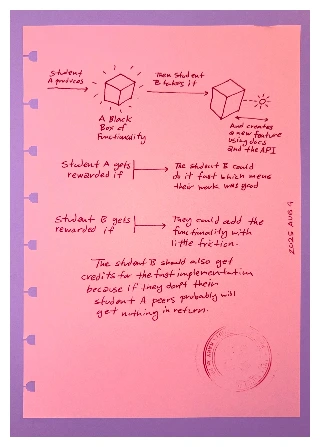 Student
A produces
Then student
B takes it
A Black
Box of
Functionality
And creates
a new feature
using docs
and the API
Student A gets
rewarded if
The student B could
do it fast which means
their work was good
Student B gets
rewarded if
They could add the
functionality with
little friction.
The student B should also get
credits for the fast implementation
because if they don't their
student A peers probably will
get nothing in return.
2025 AUG 9